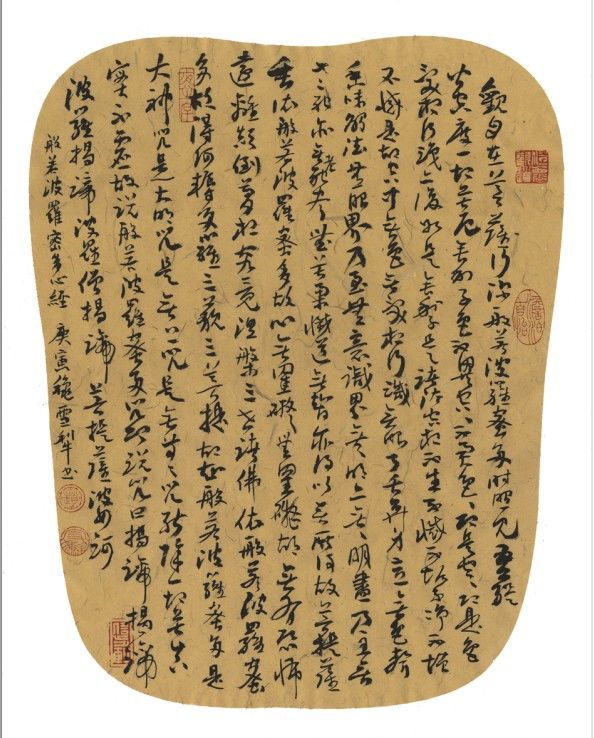 觀自在菩薩行深般若波羅蜜多時照見五蘊
皆空度一切苦厄舍利子色不異空空不異色色即是空空即是色
受想行識亦復如是舍利子是諸法空相不生不滅不垢不淨不增
不減是故空中無色無受想行識無眼耳鼻舌身意無色聲香
味觸法無眼界乃至無意識界無無明亦無無明盡乃至無
老死亦無老死盡無苦集滅道無智亦無得以無所得故菩提薩
埵依般若波羅蜜多故心無罣礙無罣礙故無有恐怖
遠離顛倒夢想究竟涅槃三世諸佛依般若波羅蜜
多故得阿耨多羅三藐三菩提故知般若波羅蜜多是
大神咒是大明咒是無上咒是無等等咒能除一切苦真
實不虛故說般若波羅蜜多咒即說咒曰揭諦揭諦
波羅揭諦波羅僧揭諦菩提薩婆訶
般若波羅密多心経 庚寅穐雪犁书